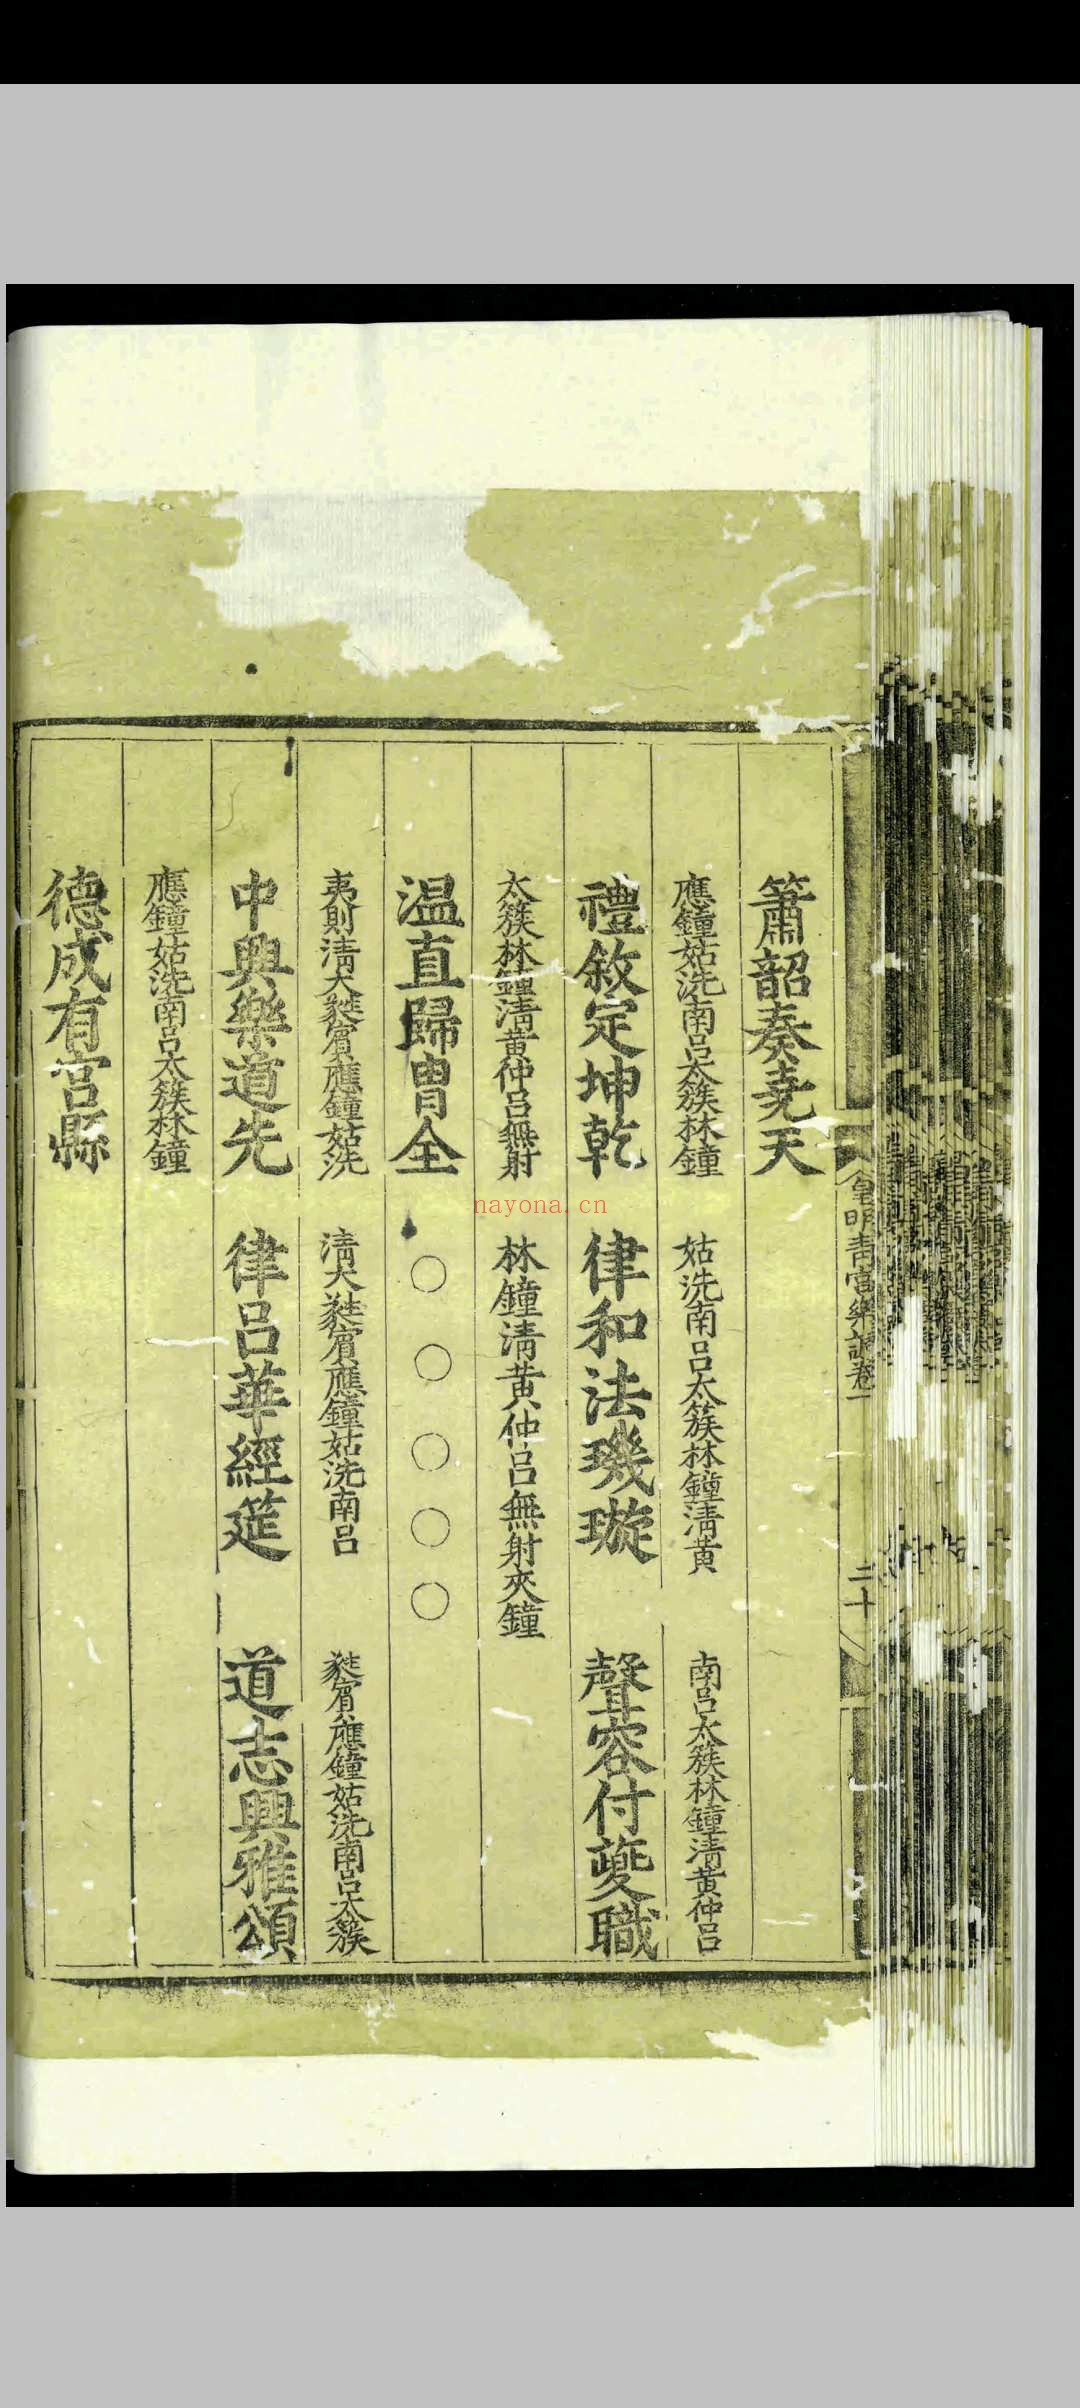 皇明靑宮樂調卷一
二十
簫韶奏堯天
應鐘姑洗南呂太簇林鐘 姑洗南呂太簇林鐘清黃 南呂太簇林鐘清黃仲呂
禮敘定坤乾 律和法璣璇 聲容付夔職
太簇林鐘清黃仲呂無射 林鐘清黃仲呂無射夾鐘
溫直歸冑全 ○○○○○
夷則清大蕤賓應鐘姑洗 清大蕤賓應鐘姑洗南呂 蕤賓應鐘姑洗南呂太簇
中興樂道先 律呂華經筵 道志興雅頌
應鐘姑洗南呂太簇林鐘
德成有宮縣
nayona.cn